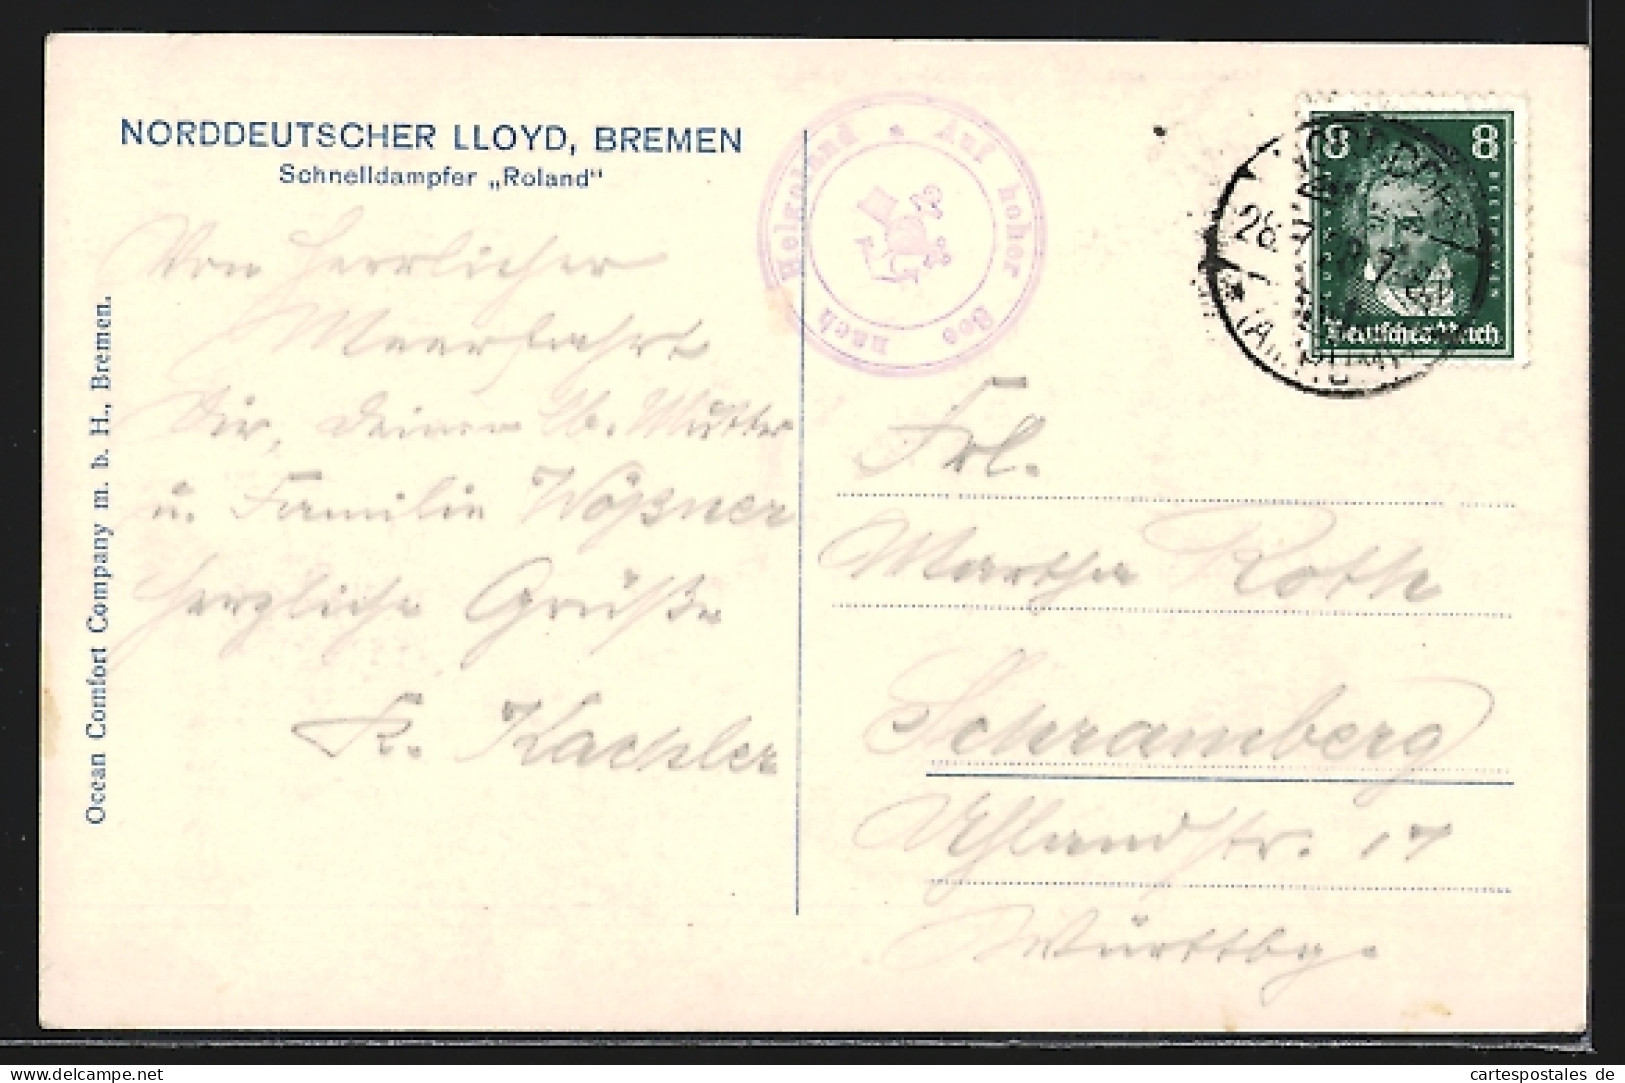 NORDDEUTSCHER LLOYD, BREMEN
Schnelldampfer „Roland“
Von herrlicher
Meerfahrt
Dir, Deiner lb. Mutter
u. Familie Wößner
herzliche Grüße
K. Kachler
Ocean Comfort Company m. b. H., Bremen.
Auf hoher See nach Helgoland
8 8
Deutsches Reich
28.7
Frl.
Martha Roth
Schramberg
Uhlandstr. 17
Württbg.
www.cartespostales.de